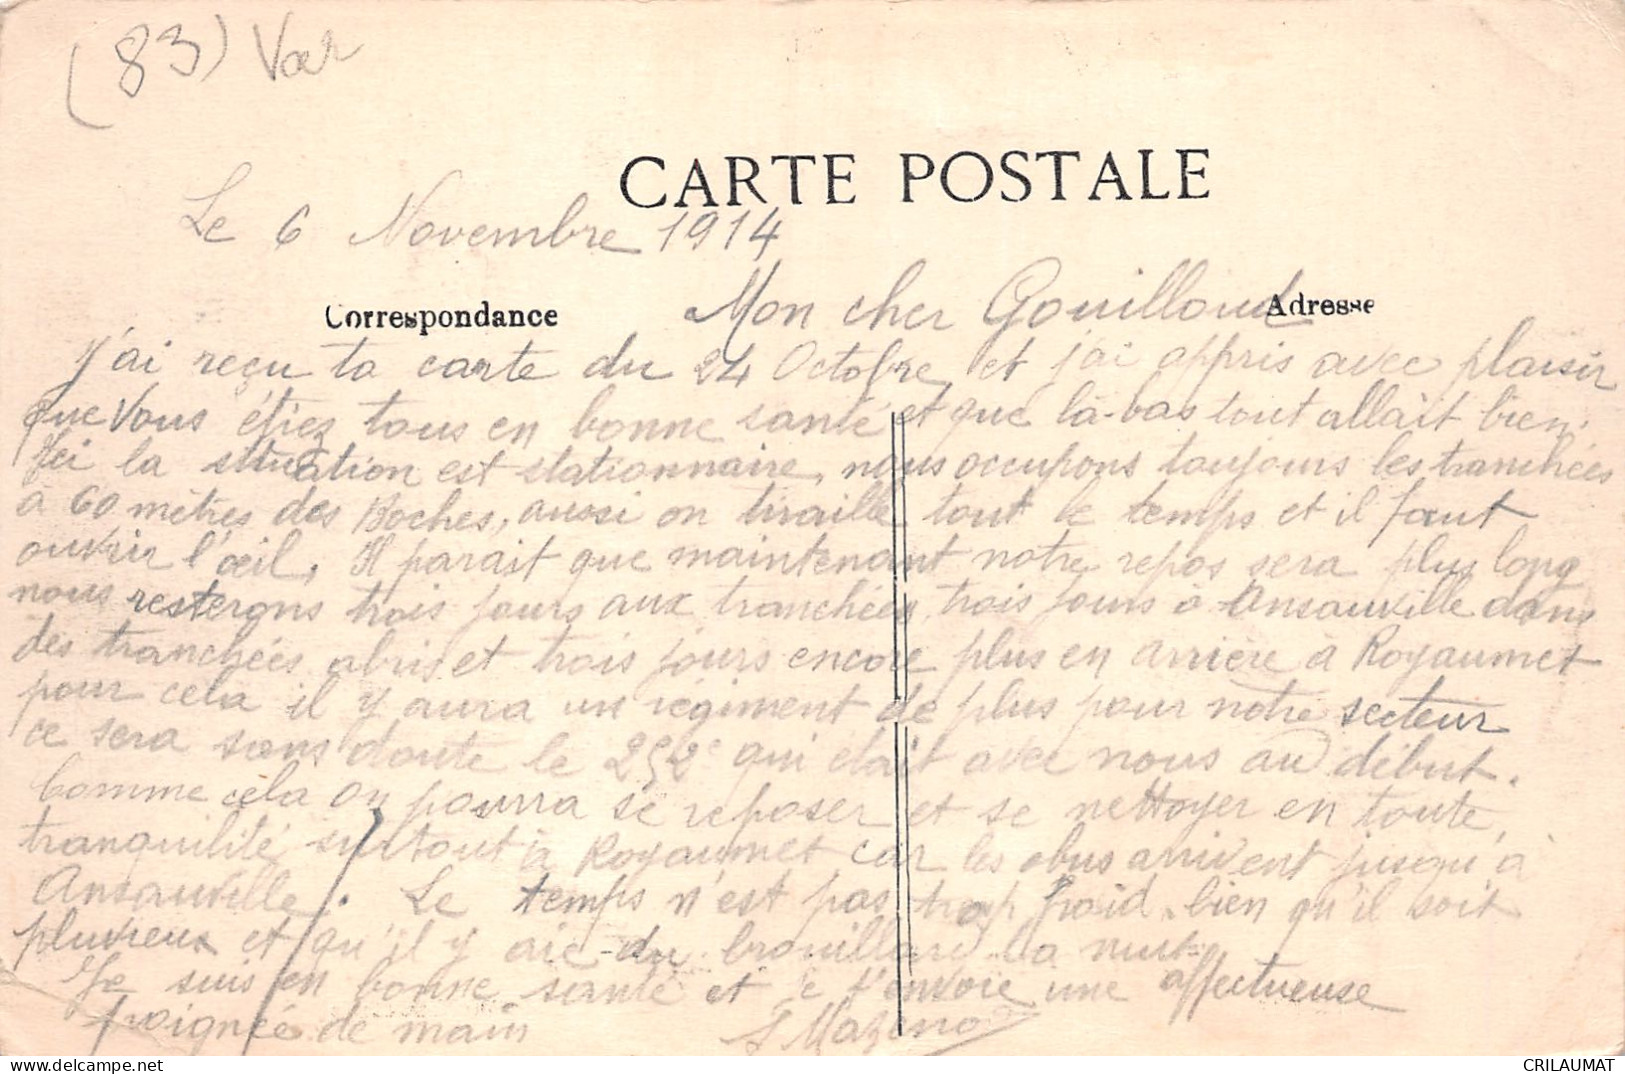 (83) Var
CARTE POSTALE
Le 6 Novembre 1914
Correspondance
Adresse
Mon cher Gouilloud
J'ai reçu ta carte du 24 Octobre, et j'ai appris avec plaisir
que vous étiez tous en bonne santé et que là-bas tout allait bien.
Ici la situation est stationnaire, nous occupons toujours les tranchées
à 60 mètres des Boches, aussi on tiraille tout le temps et il faut
ouvrir l'œil. Il parait que maintenant notre repos sera plus long
nous resterons trois jours aux tranchées, trois jours à Ansauville dans
des tranchées abris et trois jours encore plus en arrière à Royaumet
pour cela il y aura un régiment de plus pour notre secteur
ce sera sans doute le 252e qui était avec nous au début.
Comme cela on pourra se reposer et se nettoyer en toute
tranquilité surtout à Royaumet car les obus arrivent jusqu'à
Ansauville. Le temps n'est pas trop froid, bien qu'il soit
pluvieux et qu'il y aie du brouillard la nuit.
Je suis en bonne santé et je t'envoie une affectueuse
poignée de main
CRILAUMAT